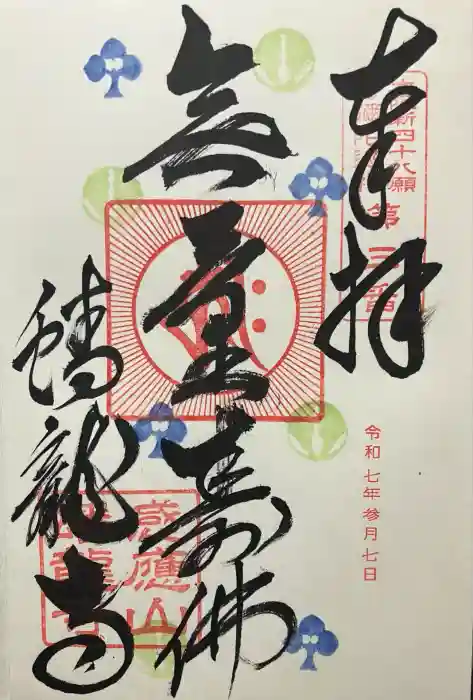 奉拝
新四十八願
第三番
令和七年参月七日
無量壽佛
蟠龍寺
感應山